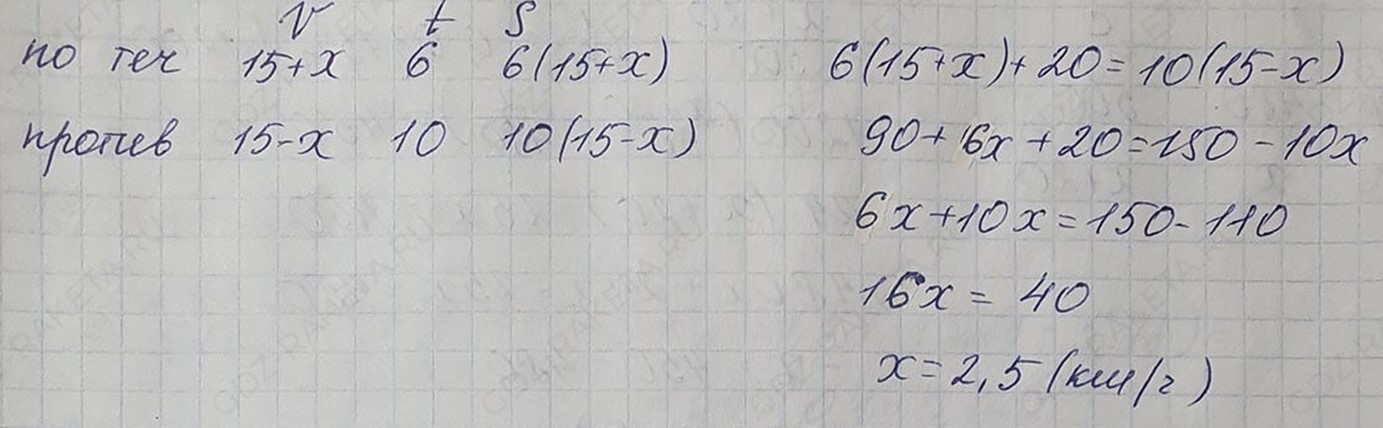 V t S
по теч 15+x 6 6(15+x) 6(15+x)+20=10(15-x)
против 15-x 10 10(15-x) 90+6x+20=150-10x
6x+10x=150-110
16x=40
x=2,5 (км/г)